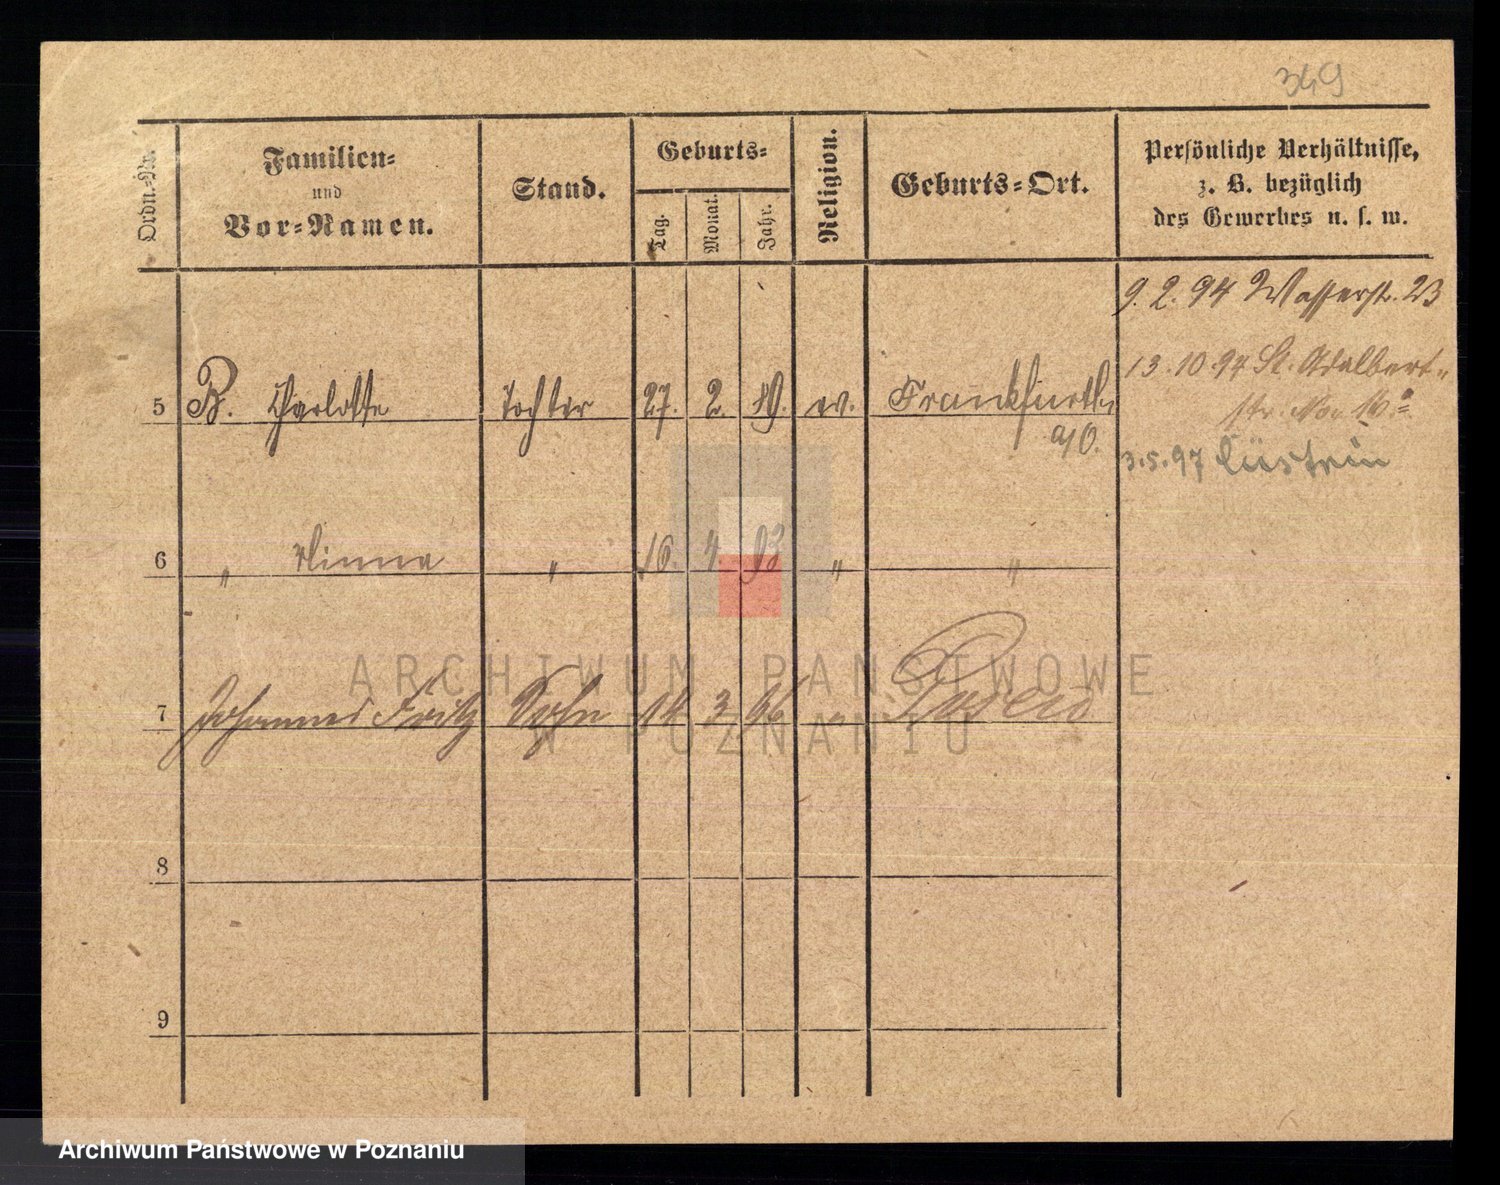 349
Ordn.-Nr.
Familien-
und
Vor-Namen.
Stand.
Geburts-
Tag.
Monat.
Jahr.
Religion.
Geburts-Ort.
Persönliche Verhältnisse,
z. B. bezüglich
des Gewerbes u. s. w.
9. 2. 94 Wasserstr. 23
13. 10. 94 St. Adalbert-
str. No.
5 B. Charlotte Tochter 27. 2. 89. ev. Frankfurth
a/O.
3. 5. 97 Cüstrin
6 " Minna " 16. 4 93 " "
7 Johannes Fritz Sohn 14 3 96 " Posen
8
9
ARCHIWUM PAŃSTWOWE
W POZNANIU
Archiwum Państwowe w Poznaniu